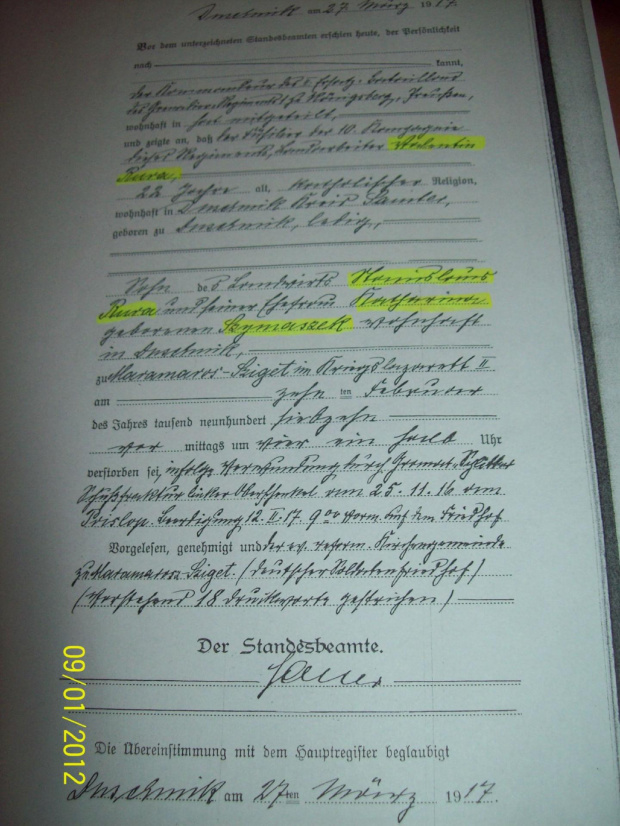 Duschnik am 27 März 1917.
Vor dem unterzeichneten Standesbeamten erschien heute, der Persönlichkeit
nach kannt,
der Kommandeur des I Ersatz-Bataillons
des Grenadier-Regiments Königsberg, Preußen,
wohnhaft in hat mitgeteilt,
und zeigte an, daß der Füsilier der 10. Kompagnie
dieses Regiments, Landarbeiter Valentin
Kura,
22 Jahre alt, katholischer Religion,
wohnhaft in Duschnik Kreis Samter,
geboren zu Duschnik, ledig,
Sohn des Landwirts Stanislaus
Kura und seiner Ehefrau Katharina
geborenen Szymaszek wohnhaft
in Duschnik,
zu Maramaros-Sziget im Kriegslazarett II
am zehn ten Februar
des Jahres tausend neunhundert siebzehn
vor mittags um vier ein halb Uhr
verstorben sei, infolge Verwundung durch Granat-Splitter
Schußfraktur linker Oberschenkel am 25.11.16 am
Prislop. Beerdigung 12.II.17. 9 00 vorm. auf dem Friedhof
Vorgelesen, genehmigt und der ev. reform. Kirchengemeinde
zu Maramaros-Sziget. (deutscher Soldatenfriedhof)
(Vorstehend 18 Druckworte gestrichen)
Der Standesbeamte.
Die Übereinstimmung mit dem Hauptregister beglaubigt
Duschnik am 27ten März 1917.
09/01/2012